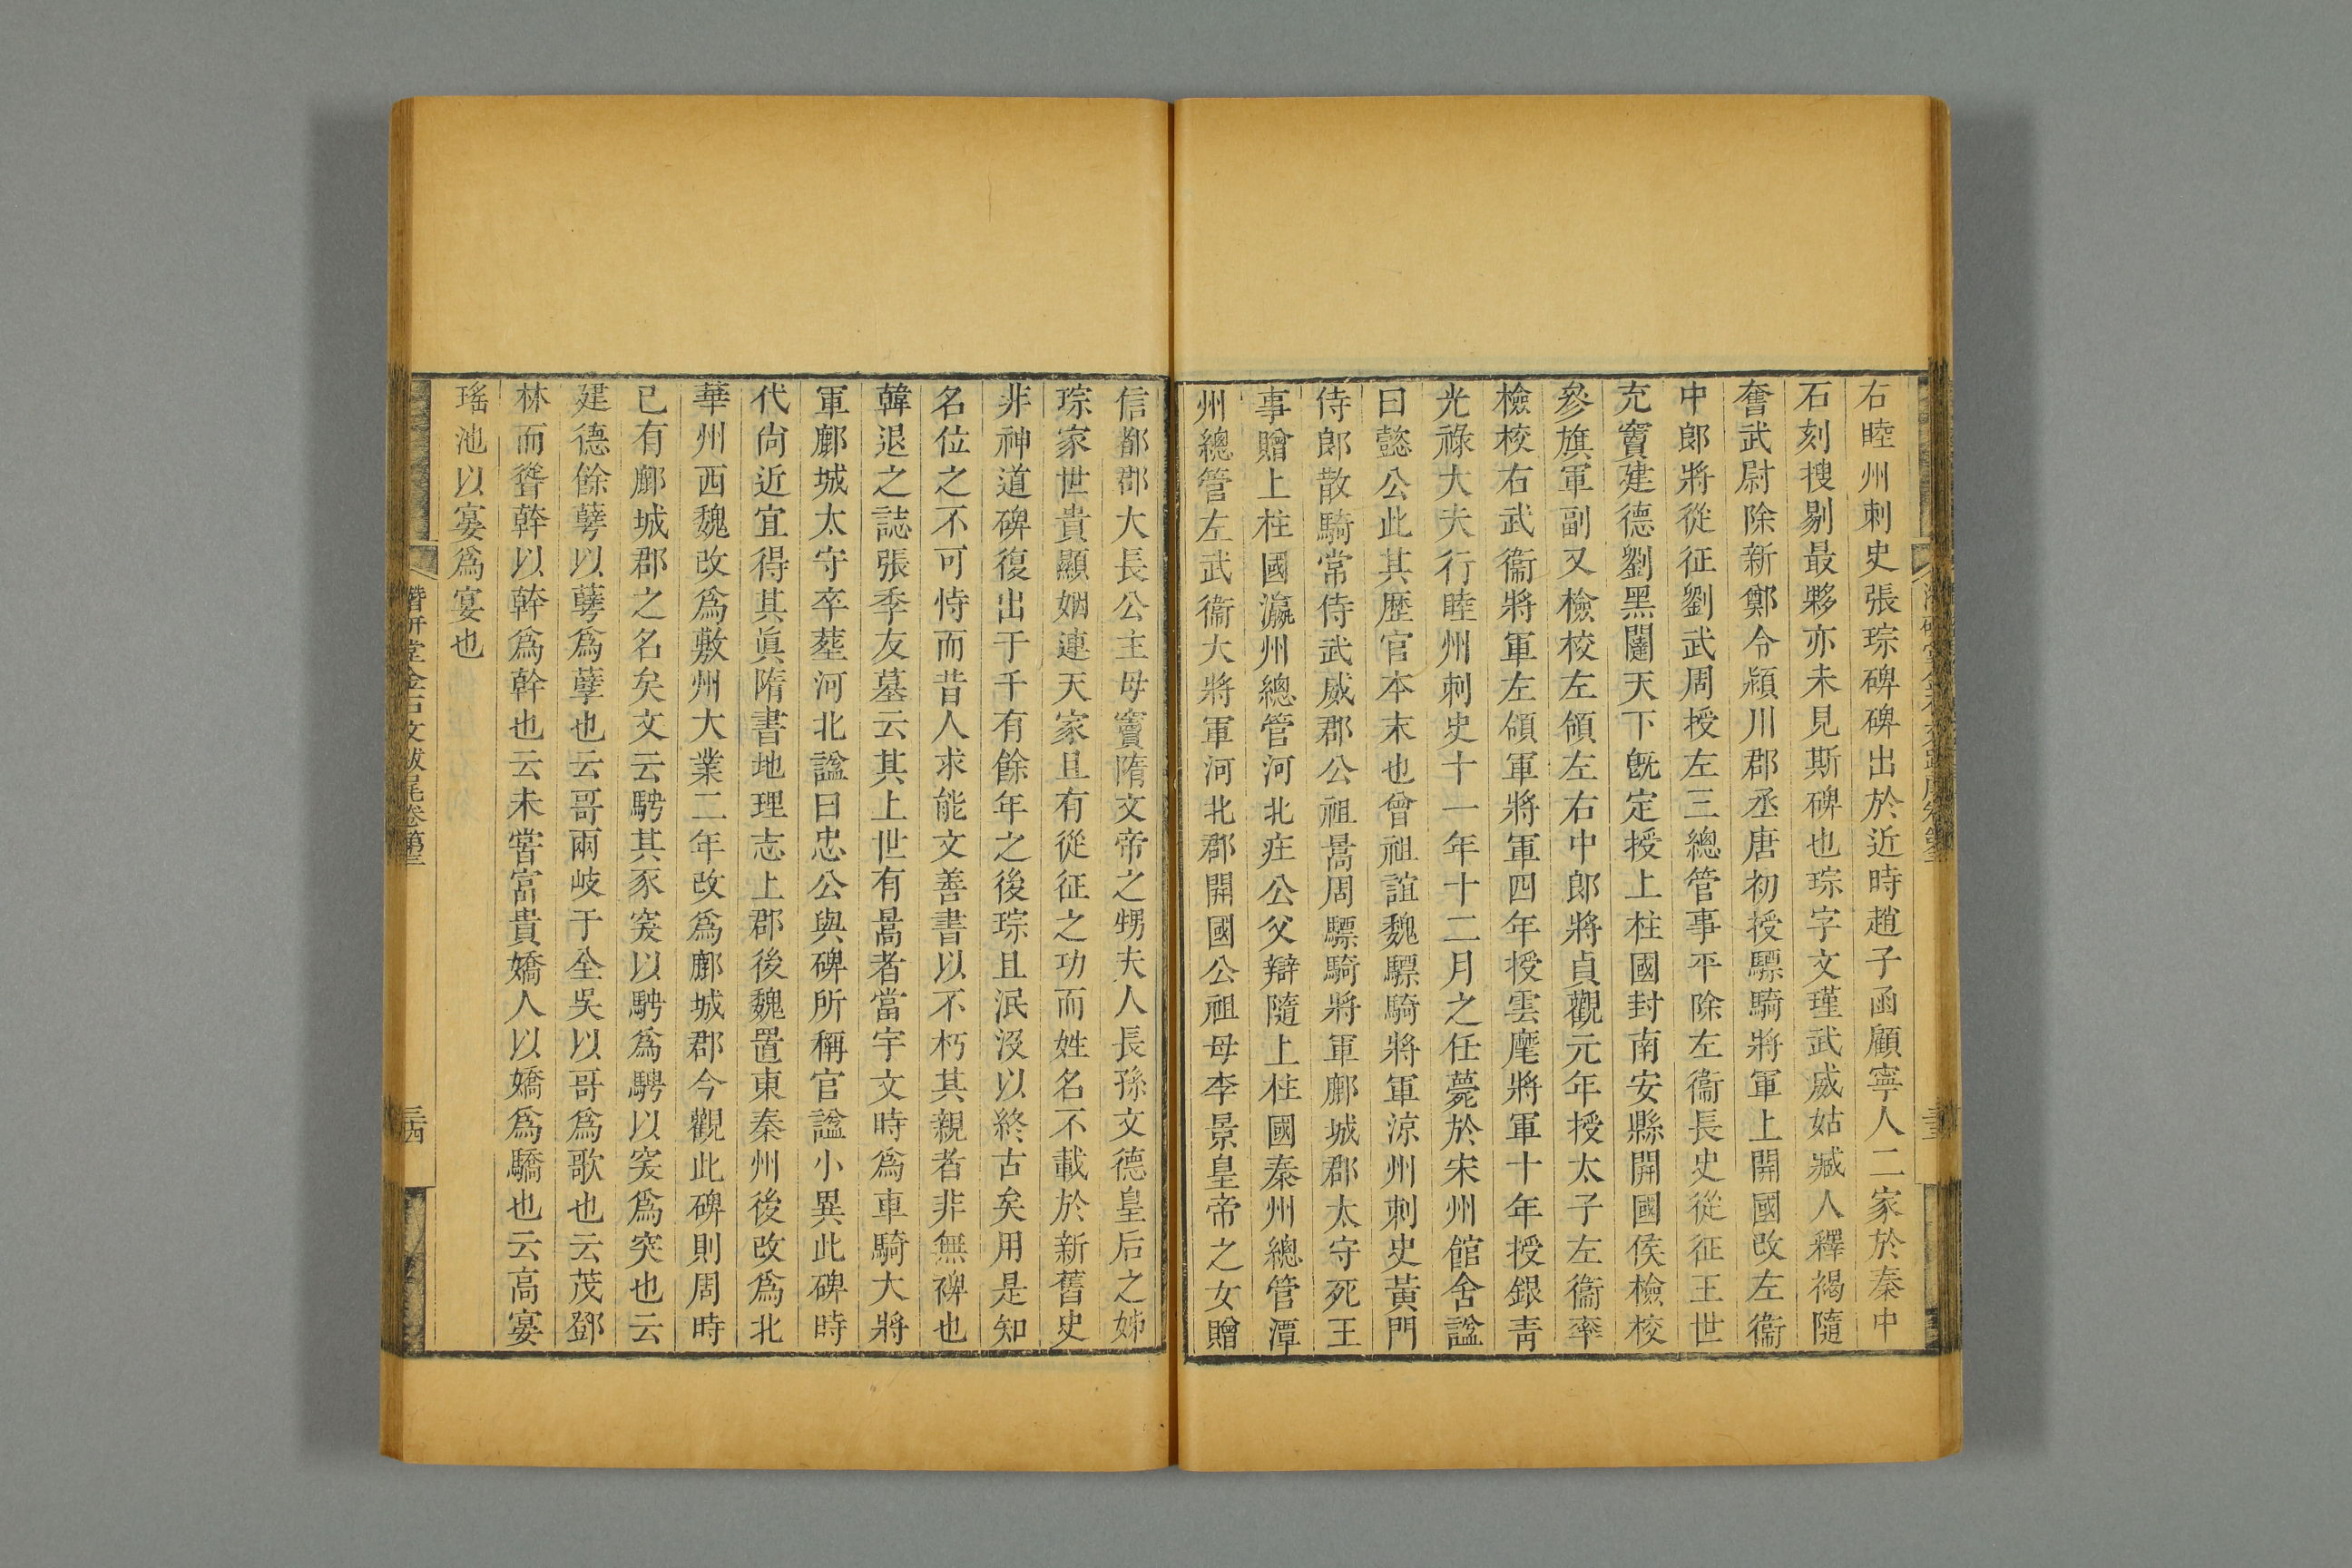 右睦州刺史張琮碑碑出於近時趙子函顧寧人二家於秦中
石刻搜剔最夥亦未見斯碑也琮字文瑾武威姑臧人釋褐隨
奮武尉除新鄭令潁川郡丞唐初授驃騎將軍上開國改左衞
中郎將從征劉武周授左三總管事平除左衞長史從征王世
充竇建德劉黑闥天下既定授上柱國封南安縣開國侯檢校
參旗軍副又檢校左領左右中郎將貞觀元年授太子左衞率
檢校右武衞將軍左領軍將軍四年授雲麾將軍十年授銀青
光祿大夫行睦州刺史十一年十二月之任薨於宋州館舍諡
曰懿公此其歷官本末也曾祖誼魏驃騎將軍涼州刺史黃門
侍郎散騎常侍武威郡公祖暠周驃騎將軍鄜城郡太守死王
事贈上柱國瀛州總管河北莊公父辯隨上柱國秦州總管潭
州總管左武衞大將軍河北郡開國公祖母李景皇帝之女贈
信都郡大長公主母竇隋文帝之甥夫人長孫文德皇后之姊
琮家世貴顯姻連天家且有從征之功而姓名不載於新舊史
非神道碑復出于千有餘年之後琮且泯沒以終古矣用是知
名位之不可恃而昔人求能文善書以不朽其親者非無裨也
韓退之誌張季友墓云其上世有暠者當宇文時爲車騎大將
軍鄜城太守卒塟河北諡曰忠公與碑所稱官諡小異此碑時
代尚近宜得其眞隋書地理志上郡後魏置東秦州後改爲北
華州西魏改爲敷州大業二年改爲鄜城郡今觀此碑則周時
已有鄜城郡之名矣文云騁其豕突以騁爲騁以突爲突也云
建德餘孽以孽爲孽也云哥兩岐于全吳以哥爲歌也云茂鄧
林而聳幹以幹爲幹也云未嘗富貴嬌人以嬌爲驕也云高宴
瑤池以宴爲宴也
潛研堂金石文跋尾卷第三
三四